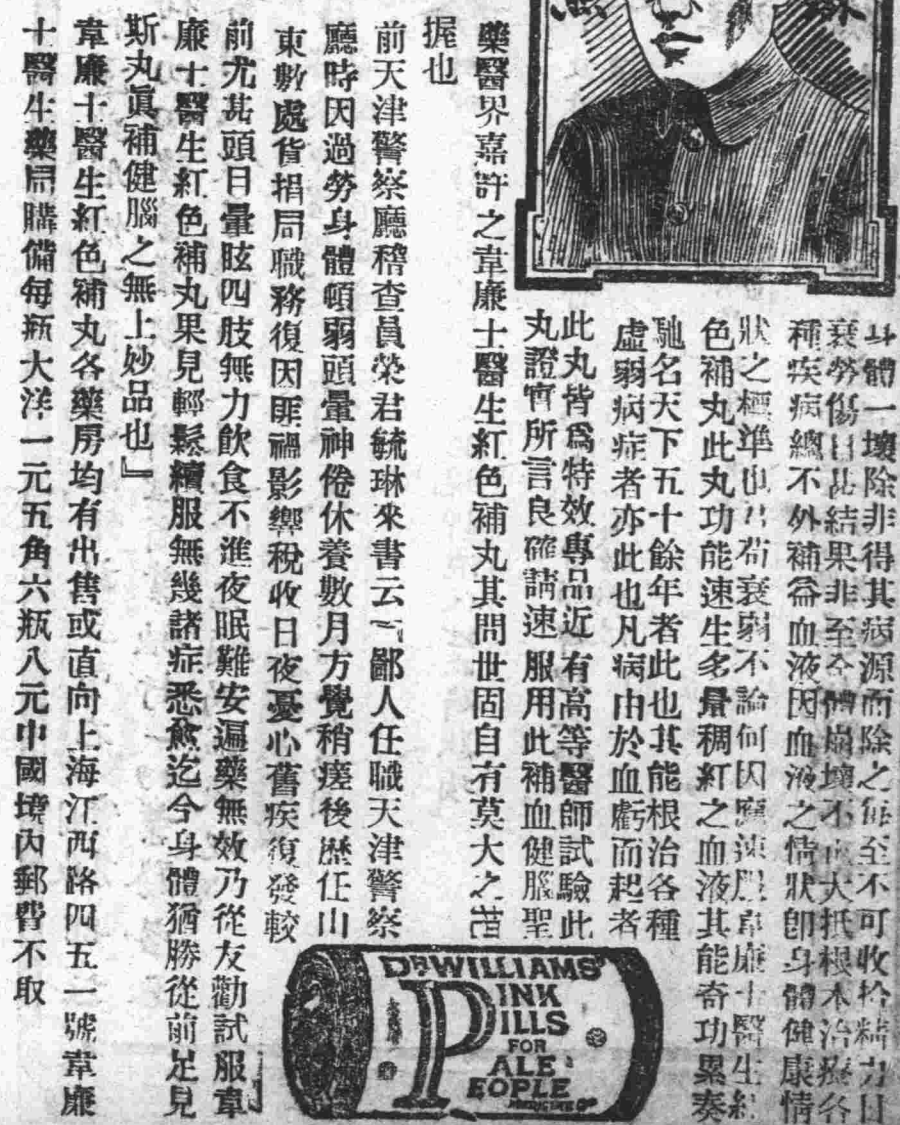 身體一壞除非得其病源而除之每至不可收拾精力日
衰勞傷日甚結果非至全體崩壞不止大抵根本治療各
種疾病總不外補益血液因血液之情狀卽身體健康情
狀之標準也君苟衰弱不論何因應速服韋廉士醫生紅
色補丸此丸功能速生多量稠紅之血液其能奇功累奏
馳名天下五十餘年者此也其能根治各種
虛弱病症者亦此也凡病由於血虧而起者
此丸皆爲特效專品近有高等醫師試驗此
丸證實所言良確請速服用此補血健腦聖
藥醫界嘉許之韋廉士醫生紅色補丸其問世固自有莫大之
握也
前天津警察廳稽查員榮君毓琳來書云『鄙人任職天津警察
廳時因過勞身體頓弱頭暈神倦休養數月方覺稍瘥後歷任山
東數處貨捐局職務復因匪禍影響稅收日夜憂心舊疾復發較
前尤甚頭目暈眩四肢無力飲食不進夜眠難安遍藥無效乃從友勸試服韋
廉士醫生紅色補丸果見輕鬆續服無幾諸症悉愈迄今身體猶勝從前足見
斯丸眞補健腦之無上妙品也』
韋廉士醫生紅色補丸各藥房均有出售或直向上海江西路四五一號韋廉
士醫生藥局購備每瓶大洋一元五角六瓶八元中國境內郵費不取
DR WILLIAMS'
PINK
PILLS
FOR
PALE
PEOPLE